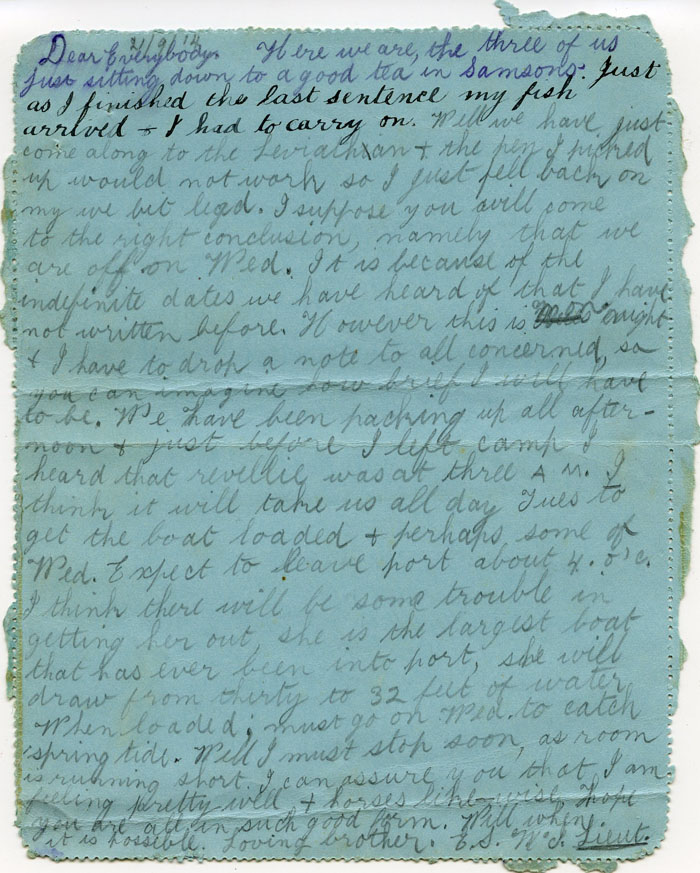 21/9/14
Dear Everybody. Here we are, the three of us
just sitting down to a good tea in Samsons. Just
as I finished the last sentence my fish
arrived + I had to carry on. Well we have just
come along to the Leviathan + the pen I picked
up would not work so I just fell back on
my we bit lead. I suppose you will come
to the right conclusion, namely that we
are off on Wed. It is because of the
indefinite dates we have heard of that I have
not written before. However this is night
+ I have to drop a note to all concerned, so
you can imagine how brief I will have
to be. We have been packing up all after-
noon + just before I left camp I
heard that revellie was at three A M. I
think it will take us all day Tues to
get the boat loaded + perhaps some of
Wed. Expect to leave port about 4. o'c.
I think there will be some trouble in
getting her out, she is the largest boat
that has ever been into port, she will
draw from thirty to 32 feet of water
When loaded; must go on Wed. to catch
spring tide. Well I must stop soon, as room
is running short. I can assure you that I am
feeling pretty well + horses like-wise. Hope
you are all in such good form. Will when
it is possible. Loving brother. E.S. Lieut.